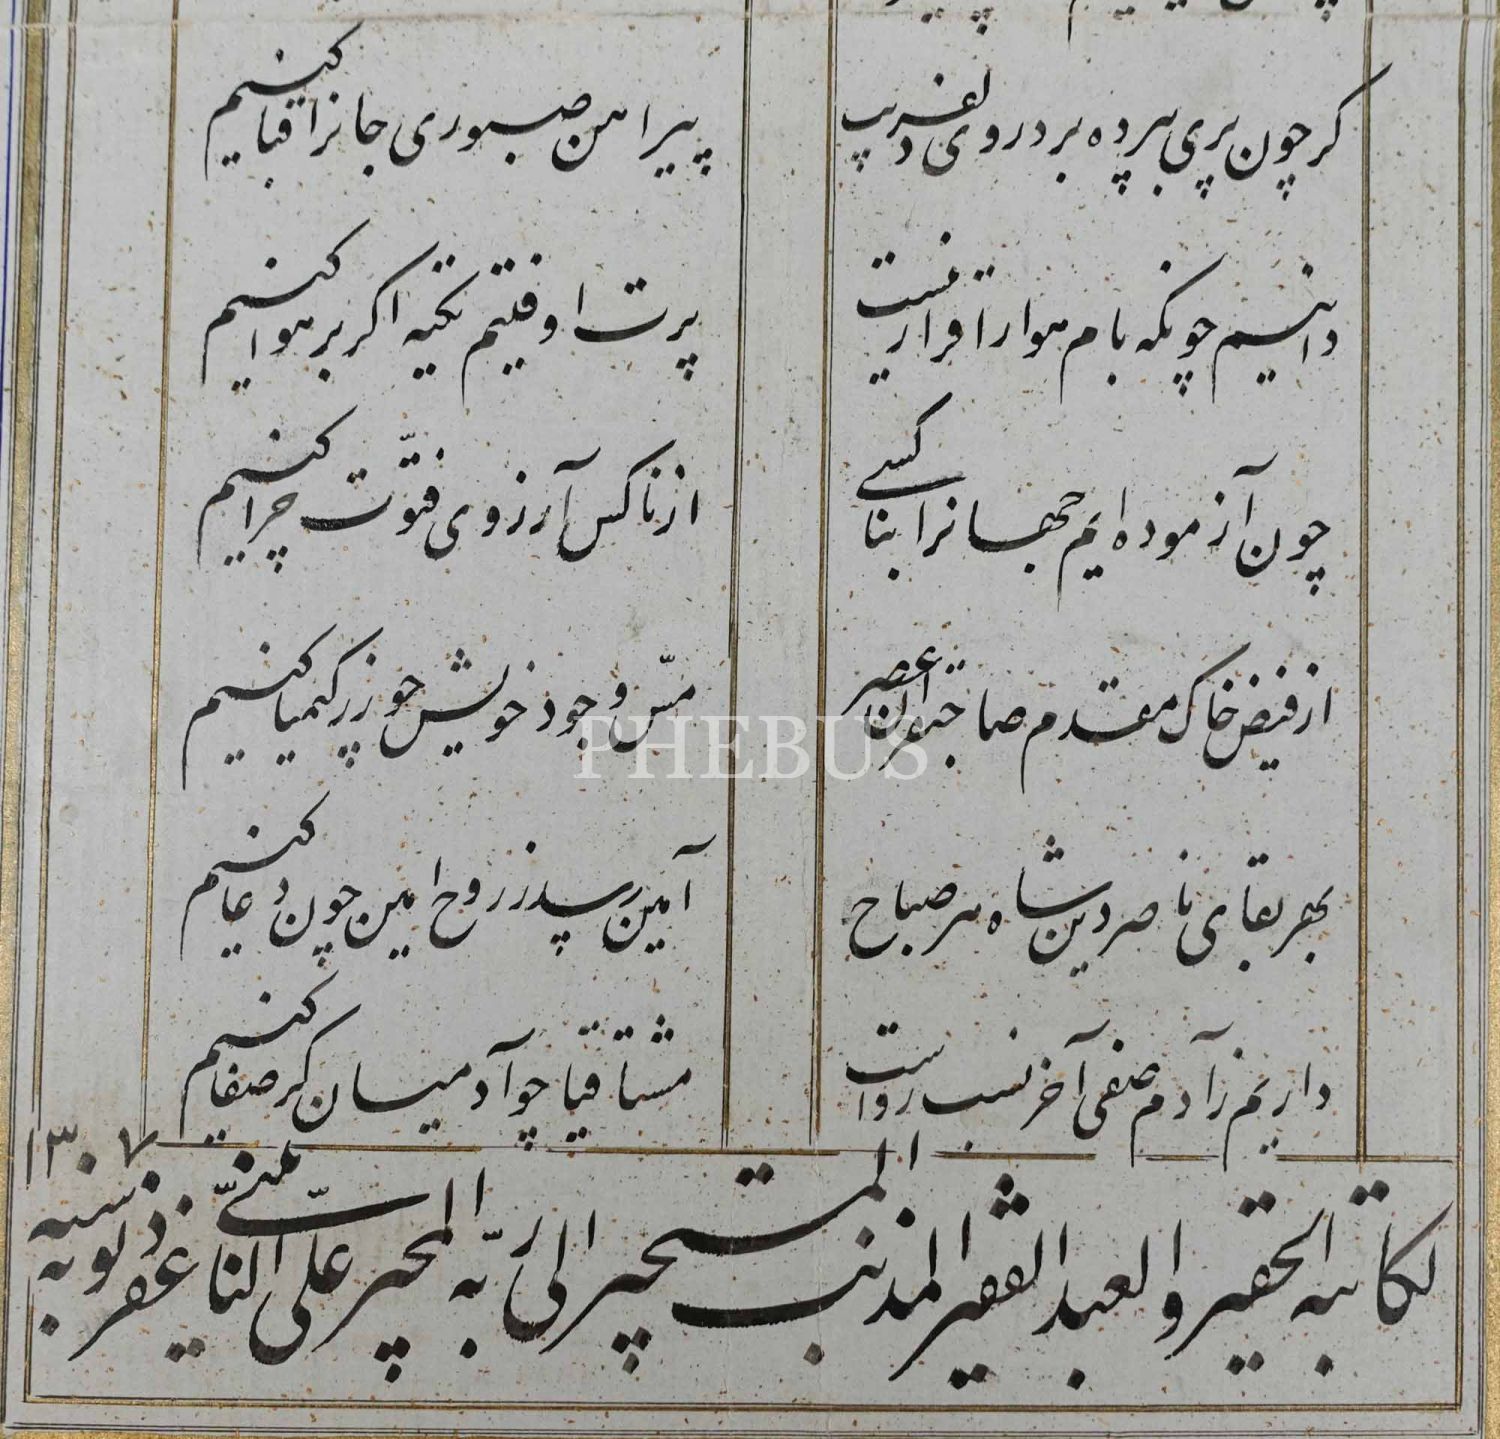 کر چون پری ببرده برد روی دلفریب
پیراهن صبوری جانرا قبا کنیم
دانیم چونکه بام هوا را قرار نیست
پرت اوفتیم تکیه اکر بر هوا کنیم
چون آزموده ایم جهانرا بناکسی
از ناکس آرزوی فتوّت چرا کنیم
از فیض خاک مقدم صاحبقران عصر
مسّ وجود خویش چو زر کیمیا کنیم
بهر بقای ناصردین شاه هر صباح
آمین رسد ز روح امین چون دعا کنیم
داریم ز آدم صفی آخر نسب رواست
مشتاقیا چو آدمیان کر صفا کنیم
لکاتبه الحقیر والعبد الفقیر المذنب المستجیر الی ربّه المجیر علی النائینی غفر ذنوبه سنه ۱۳۰۷
PHEBUS